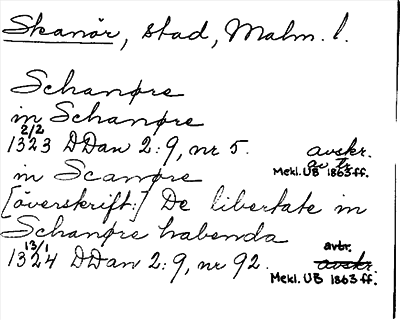 Skanör, stad, Malm. l.
Schanøre
in Schanøre
2/2
1323 DDan 2:9, nr 5. avskr.
av tr.
in Scanøre Mekl. UB 1863 ff.
[överskrift:] De libertate in
Schanøre habenda
13/1 avtr.
1324 DDan 2:9, nr 92. avskr.
Mekl. UB 1863 ff.